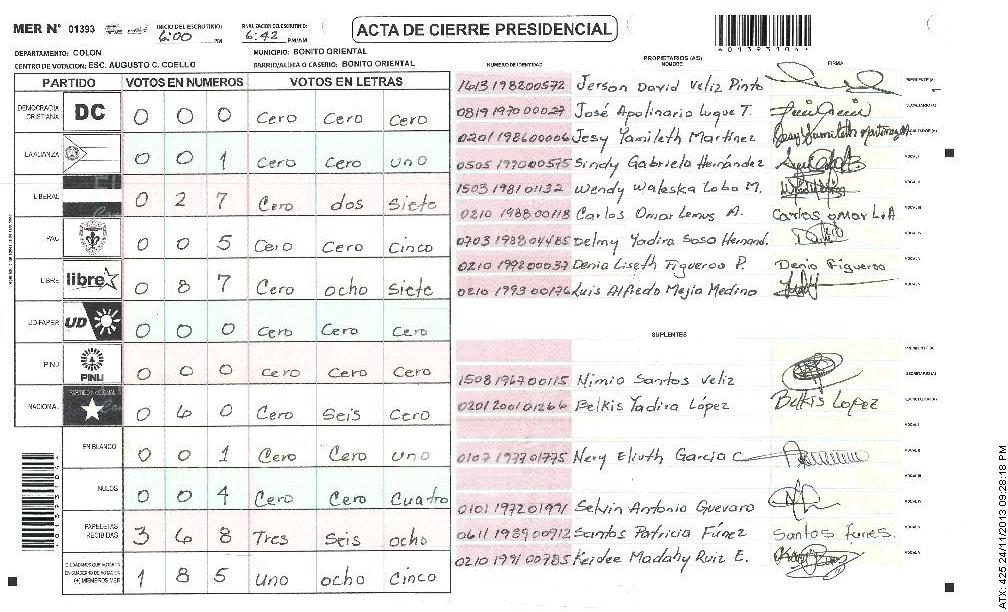 MER N° 01393 INICIO DEL ESCRUTINIO: 6:00 PM FINALIZACION ESCRUTINIO: 6:42 PM/AM ACTA DE CIERRE PRESIDENCIAL
DEPARTAMENTO: COLON MUNICIPIO: BONITO ORIENTAL
CENTRO DE VOTACION: ESC. AUGUSTO C. COELLO BARRIO/ALDEA O CASERIO: BONITO ORIENTAL
PARTIDO VOTOS EN NUMEROS VOTOS EN LETRAS
DEMOCRACIA CRISTIANA DC 0 0 0 Cero Cero Cero
LA ALIANZA 0 0 1 Cero Cero uno
LIBERAL 0 2 7 Cero dos Siete
PAC 0 0 5 Cero Cero Cinco
LIBRE libre 0 8 7 Cero ocho Siete
UD-FAPER UD 0 0 0 Cero Cero Cero
PINU PINU 0 0 0 Cero Cero Cero
NACIONAL PARTIDO NACIONAL 0 6 0 Cero Seis Cero
EN BLANCO 0 0 1 Cero Cero uno
NULOS 0 0 4 Cero Cero Cuatro
PAPELETAS RECIBIDAS 3 6 8 Tres Seis ocho
CIUDADANOS QUE VOTARON EN CUADERNO DE VOTACION (+) MIEMBROS MER 1 8 5 Uno ocho Cinco
PROPIETARIOS (AS)
NUMERO DE IDENTIDAD NOMBRE FIRMA
1613 198200572 Jerson David Veliz Pinto PRESIDENTE(A)
0819 1970 00027 José Apolinario Luque T.
0201 198600006 Jesy Yamileth Martinez Jesy Yamileth Martinez M
0505 199000575 Sindy Gabriela Hernández
1503 1981 01132 Wendy Waleska Lobo M.
0210 1988 00118 Carlos Omar Lemus A. Carlos Omar L.A
0703 1988 04485 Delmy Yadira Sosa Hernand.
0210 199200037 Denia Liseth Figueroa P. Denia Figueroa
0210 1993 00176 Luis Alfredo Mejia Medina
SUPLENTES
PRESIDENTE(A)
1508 1967 00115 Nimio Santos Veliz SECRETARIO(A)
0201 2001 01266 Belkis Yadira López Belkis Lopez
0107 1977 01775 Nery Eliuth Garcia C
0101 1972 01991 Selvin Antonio Guevara
0611 1989 00912 Santos Patricia Fúnez Santos Funes.
0210 1991 00785 Keidee Madahy Ruiz E.
ATX: 425 24/11/2013 09:28:18 PM